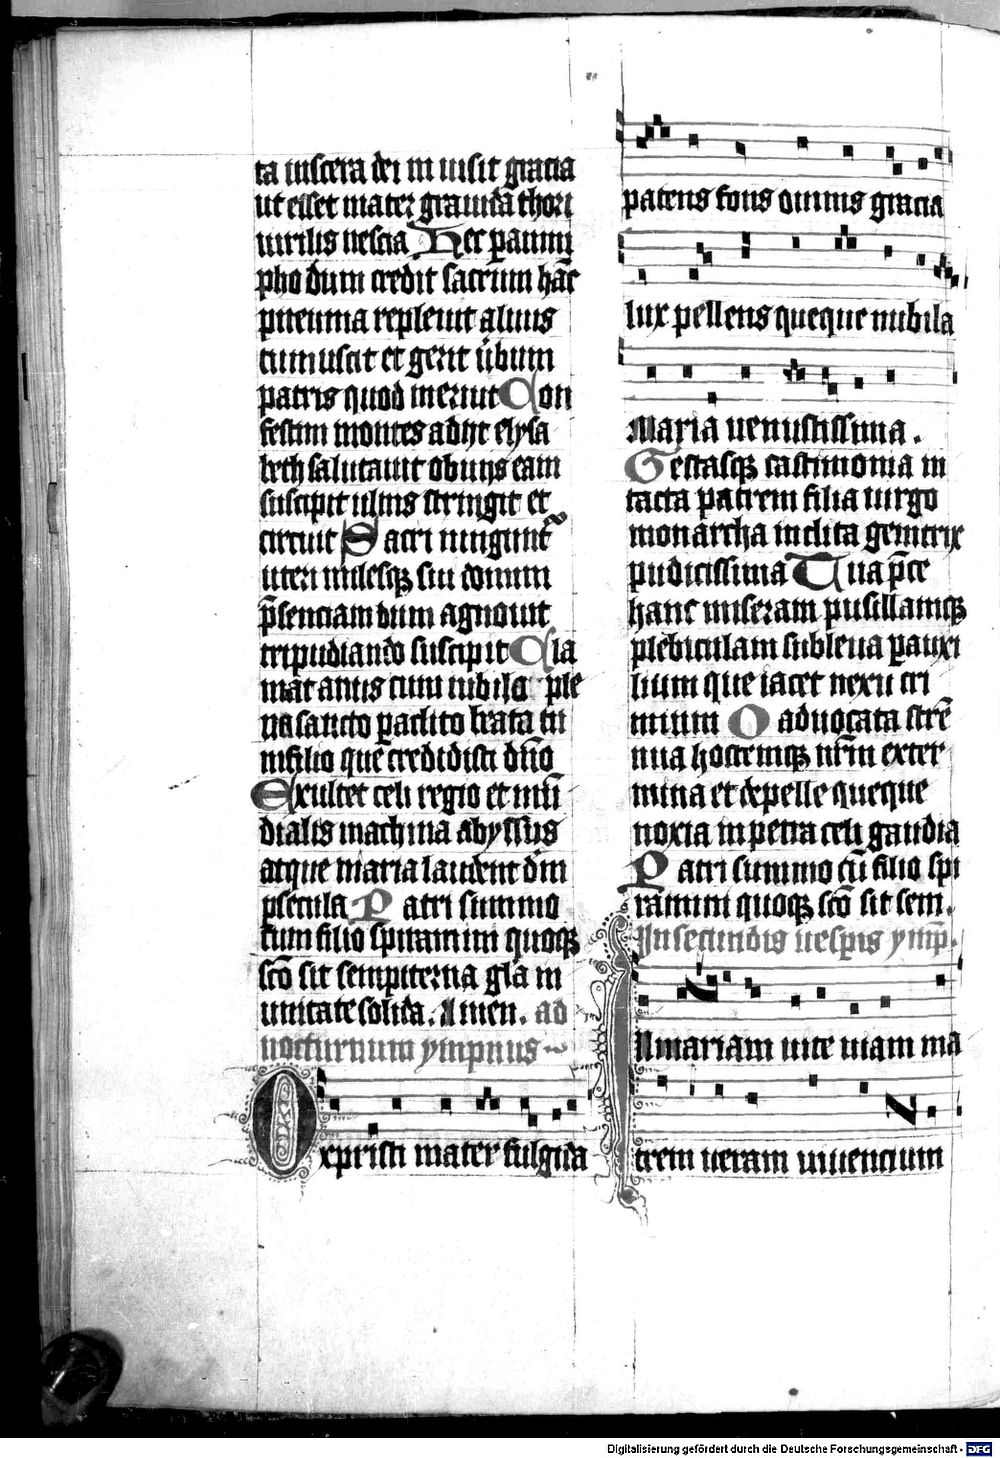 ta uiscera dei in uisit gracia
ut esset mater grauida thori
uirilis nescia Hec paranimi
pho dum credit sacrum hanc
pneuma repleuit aluus
tumuscit et gerit ūbum
patris quod meruit Con
festim montes adijt elysa
beth salutauit obuijs eam
suscipit ulnis stringit et
circuit Sacri ningunt
uteri milesqꝫ sui domini
p̄senciam dum agnouit
tripudiando suscipit Cla
mat anus cum iubilo ple
na sancto paclito beata tu
in filio que credidisti dn̄o
Exultet celi regio et mū
dialis machina abyssus
atque maria laudent dm̄
p secula Patri summo
cum filio spiramini quoqꝫ
scō sit sempiterna glā in
unitate solida. Amen. ad
nocturnum ympnus
O xpristi mater fulgida
patens fons ouinis gracia
lux pellens queque nubila
Maria uenustissima.
Gestasqꝫ castimonia in
tacta patrem filia uirgo
monarcha inclita genitrix
pudicissima Tua p̄ce
hanc miseram pusillamqꝫ
plebiculam subleua p auxi
lium que iacet nexu cri
minum O aduocata stre
nua hostemqꝫ nr̄m exter
mina et depelle queque
noxia inpetra celi gaudia
Patri summo cū filio spi
ramini quoqꝫ scō sit sem.
In secundis uespis ymp̄.
IN mariam uite uiam ma
trem ueram uiuencium
Digitalisierung gefördert durch die Deutsche Forschungsgemeinschaft - DFG